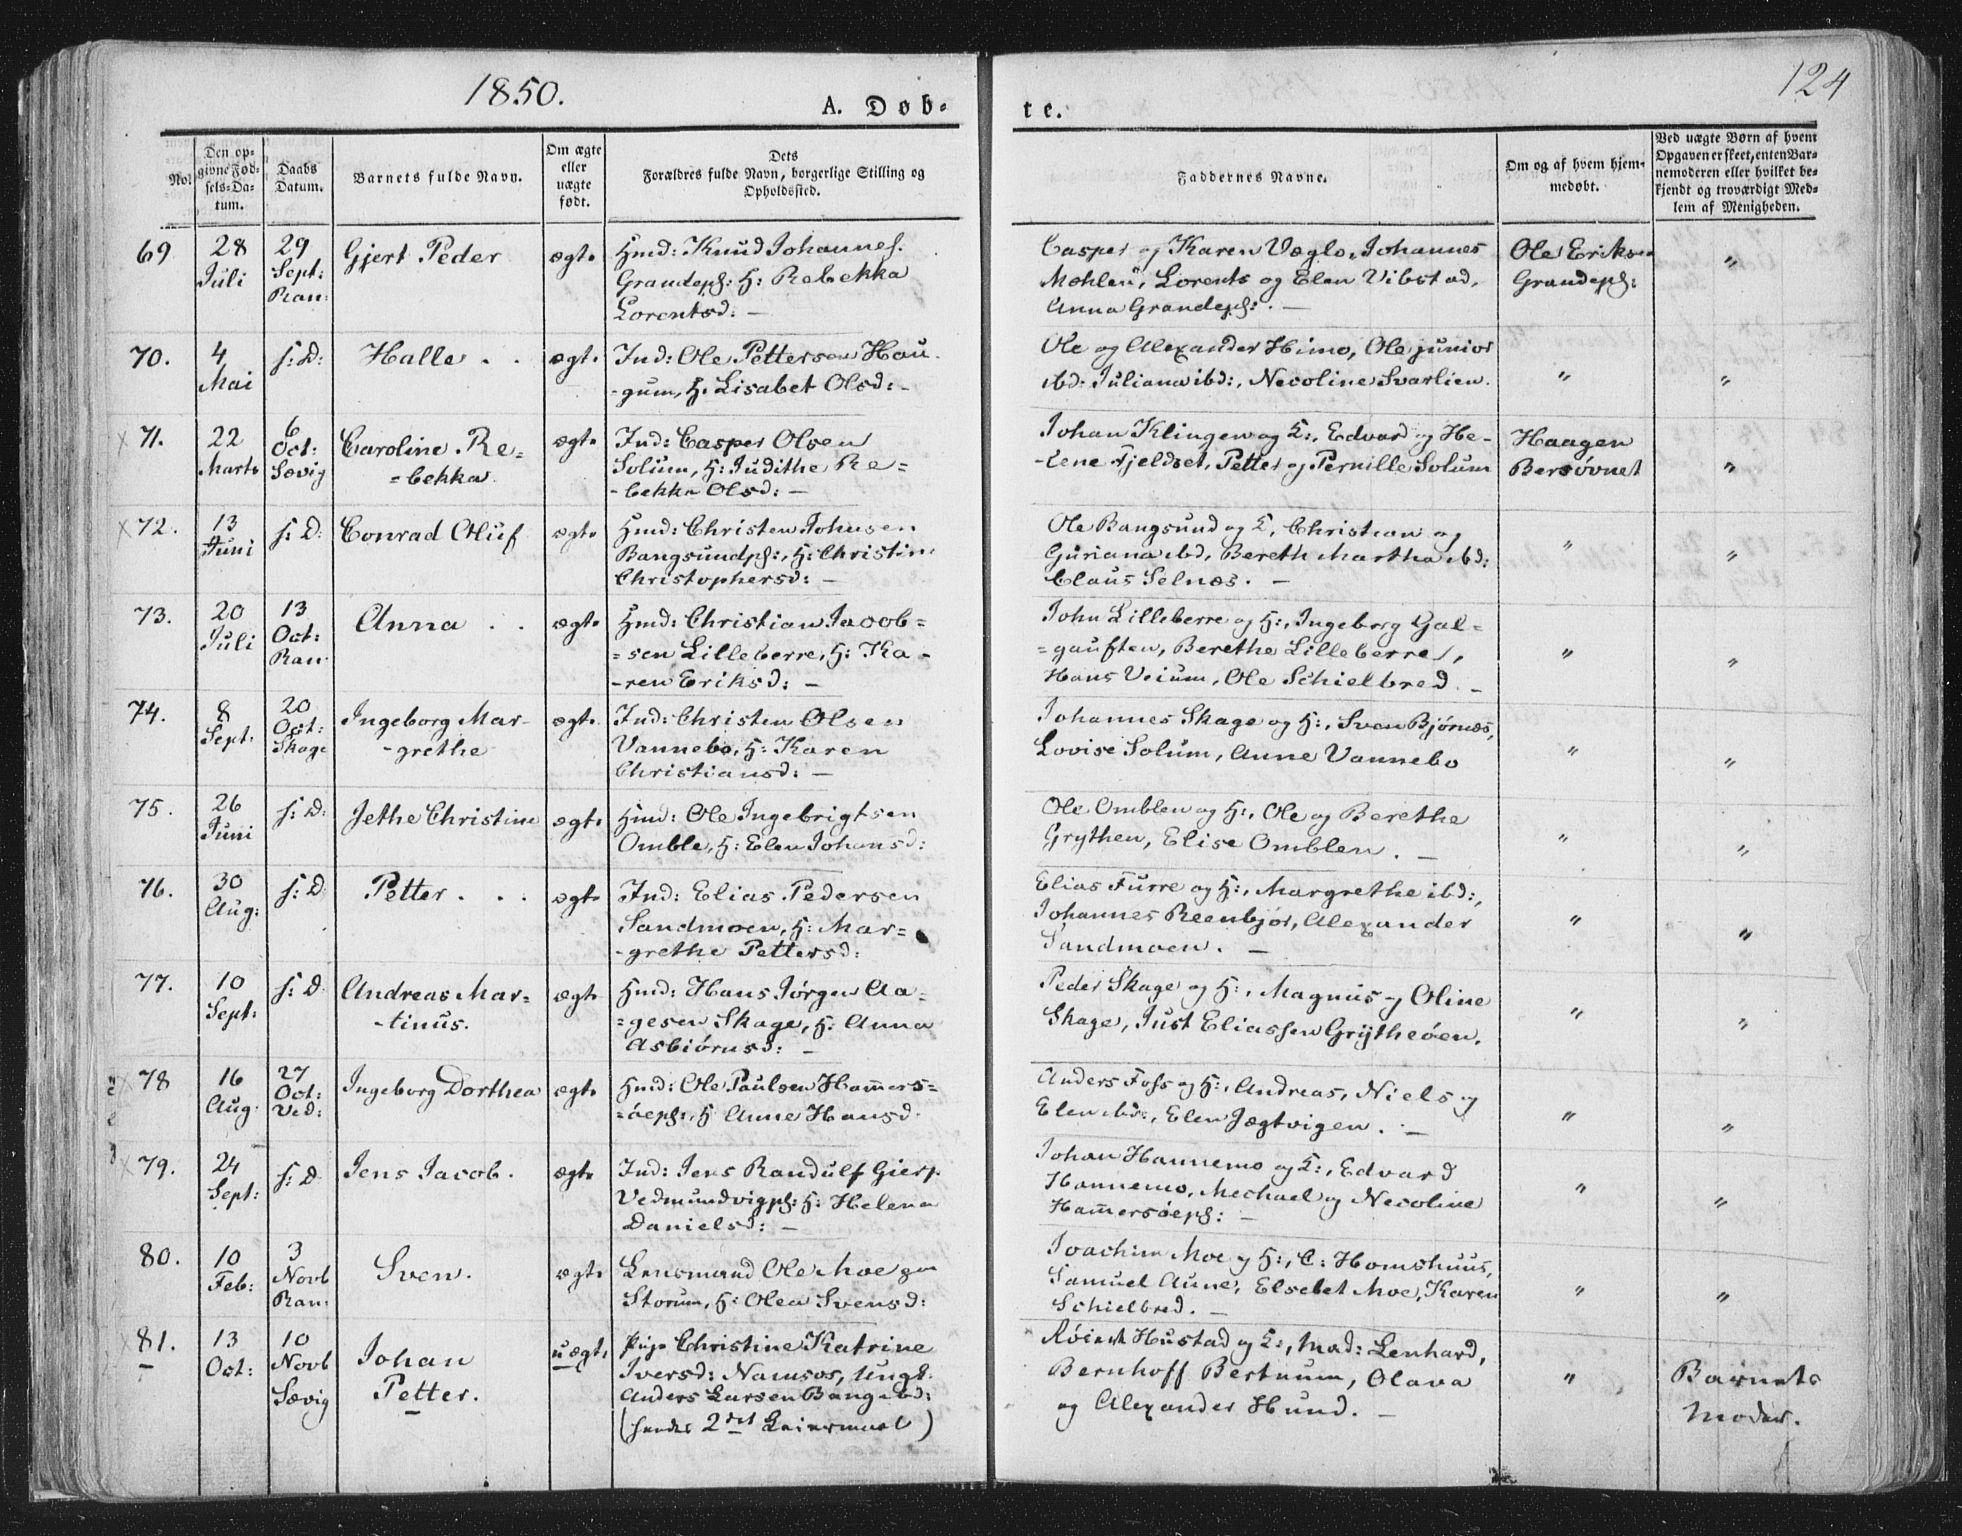 1850.
124
A. Døb-
te.
No.
Den op-
givne Fød-
sels-Da-
tum.
Daabs
Datum.
Barnets fulde Navn.
Om ægte
eller
uægte
født.
Dets
Forældres fulde Navn, borgerlige Stilling og
Opholdssted.
Faddernes Navne.
Om og af hvem hjem-
medøbt.
Ved uægte Børn af hvem
Opgaven er skeet, enten Bar-
nemoderen eller hvilket be-
kjendt og troværdigt Med-
lem af Menigheden.
69
28
Juli
29
Sept:
Ran:
Gjert Peder
ægte
Hmd: Knud Johannes.
Grandepl: H: Rebekka
Lorentsd: —
Casper og Karen Væglo, Johannes
Mohlen, Lorents og Elen Vibstad,
Anna Grandepl: —
Ole Eriksen
Grandepl:
"
70.
4
Mai
s: D:
Halle . .
ægte
Ind: Ole Pettersen Hou-
-gum, H. Lisabet Olsd: -
Ole og Alexander Himo, Ole junior
ibd: Juliana ibd:, Necoline Svarlien.
"
"
71.
22
Marts
6
Oct:
Sævig
Caroline Re-
=bekka
ægte
Ind: Casper Olsen
Solum, H: Judithe Re=
-bekka Olsd: —
Johan Klingen og K:, Edvard og He-
-lene Fjeldset, Petter og Pernille Solum
Haagen
Bersøvnet
"
72.
13
Juni
s: D:
Conrad Oluf
ægte
Hmd: Christen Johnsen
Bangsundpl:, H: Christine
Christophersd: —
Ole Bangsund og K, Christian og
Guriana ibd, Bereth Martha ibd:
Claus Selnæs. —
"
"
73.
20
Juli
13
Oct:
Ran:
Anna . .
ægte
Hmd: Christian Jacob=
=sen Lilleberre, H: Ka-
-ren Eriksd: —
John Lilleberre og H:, Ingeborg Gal=
=gauften, Berethe Lilleberre,
Hans Veium, Ole Schielbred. -
"
"
74.
8
Sept:
20
Oct:
Skage
Ingeborg Mar-
-grethe
ægte
Ind: Christen Olsen
Vannebo, H: Karen
Christiansd: —
Johannes Skage og H:, Sven Bjørnæs,
Lovise Solum, Anne Vannebo
"
"
75.
26
Juni
s: D:
Jethe Christine
ægte
Hmd: Ole Ingebrigtsen
Omble, H: Elen Johansd:
Ole Omblen og H:, Ole og Berethe
Grythen, Elise Omblen. —
"
"
76.
30
Aug:
s: D
Petter . . .
ægte
Ind: Elias Pedersen
Sandmoen, H: Mar=
-grethe Pettersd:
Elias Furre og H:, Margrethe ibd:,
Johannes Reenbjør, Alexander
Sandmoen. —
"
"
77.
10
Sept:
s: D
Andreas Mar-
-tinus.
ægte
Hmd: Hans Jørgen Aa=
=gesen Skage, H: Anna
Asbiørnsd: —
Peder Skage og H:, Magnus og Oline
Skage, Just Eliassen Grÿtheöen.
"
"
78
16
Aug.
27
Oct:
Ved:
Ingeborg Dorthea
ægte
Hmd: Ole Paulsen Ham̄ers=
=öepl:, H Anne Hansd.
Anders Foss og H:, Andreas, Niels og
Elen ibd:, Elen Jægtvigen. —
"
"
79.
24
Sept:
s: D
Jens Jacob.
ægte
Ind: Jens Randulf Gierp.
Vedmundvigpl: H: Helena
Danielsd: —
Johan Hannemo og K:, Edvard
Hannemo, Mechael og Necoline
Ham̄ersöepl: —
"
"
80.
10
Feb:
3
Novb
Ran:
Sven.
ægte
Lensmand Ole Moe paa
Storum, H: Olea Svensd:
Joachim Moe og H:, C: Homshuus,
Samuel Aune, Elsebet Moe, Karen
Schielbred. —
"
"
81.
13
Oct:
10
Novb
Sævig
Johan
Petter.
uægte
Pige Christine Katrine
Iversd: Namsos, Ungk.
Anders Larsen Bang ibd:
(hendes 2det Leiermaal)
Hustad og K:, Mad: Lenhard,
Bernhoff Bertnum, Olava
og Alexander Hund. —
"
Barnets
Moder.